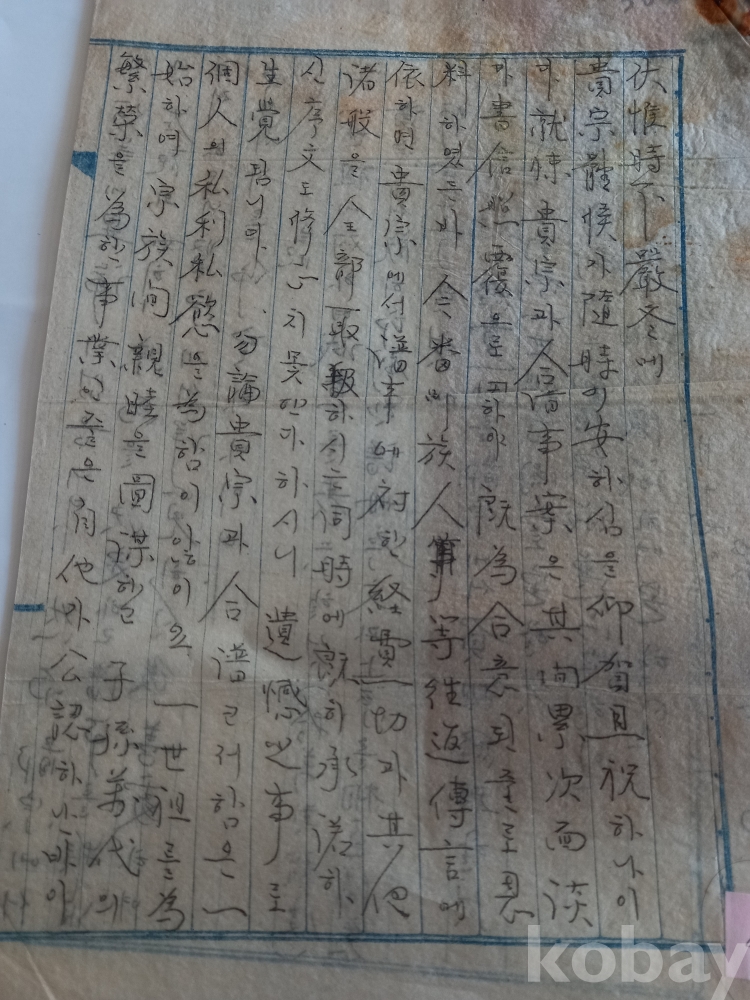 伏惟時下 嚴冬에
貴宗體候가 隨時 安하심을 仰賀且祝하나이
다 就悚 貴宗과 合譜事案은 其間累次面談
과 書信照覆으로 因하야 旣為合意되줄로 思
料하였든바 今番 族人 等往返傳言에
依하면 貴宗에서 譜事에 対한 経費一切과 其他
諸般을 全部 하시는同時에 旣히 承諾하
신 序文도 修 치못한다하시니 遺憾之事로
生覺됩니다. 勿論 貴宗과 合譜코저함은 一
個人의 私利私慾을 為함이 않이요 一世祖를 為
始하여 宗族間 親睦을 圖謀할 子孫萬代의
繁榮을 為한 事業인줄은 自他가 公認하난바이
kobay